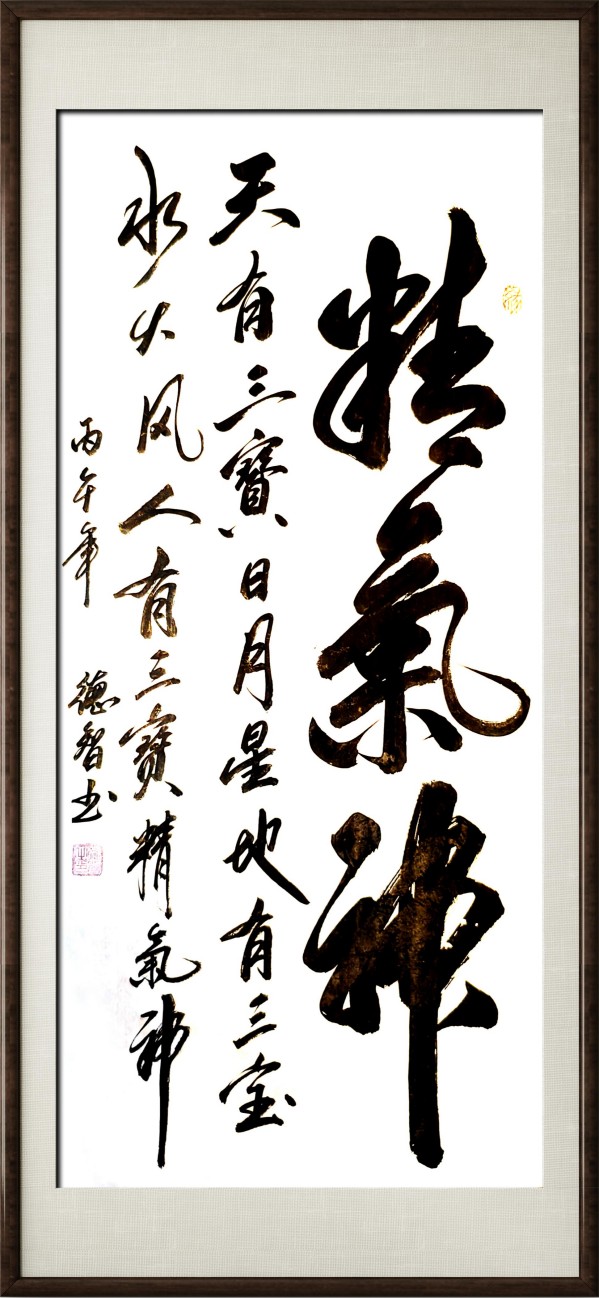 精氣神
天有三寶日月星地有三宝
水火风人有三寶精氣神
丙午年 德智书